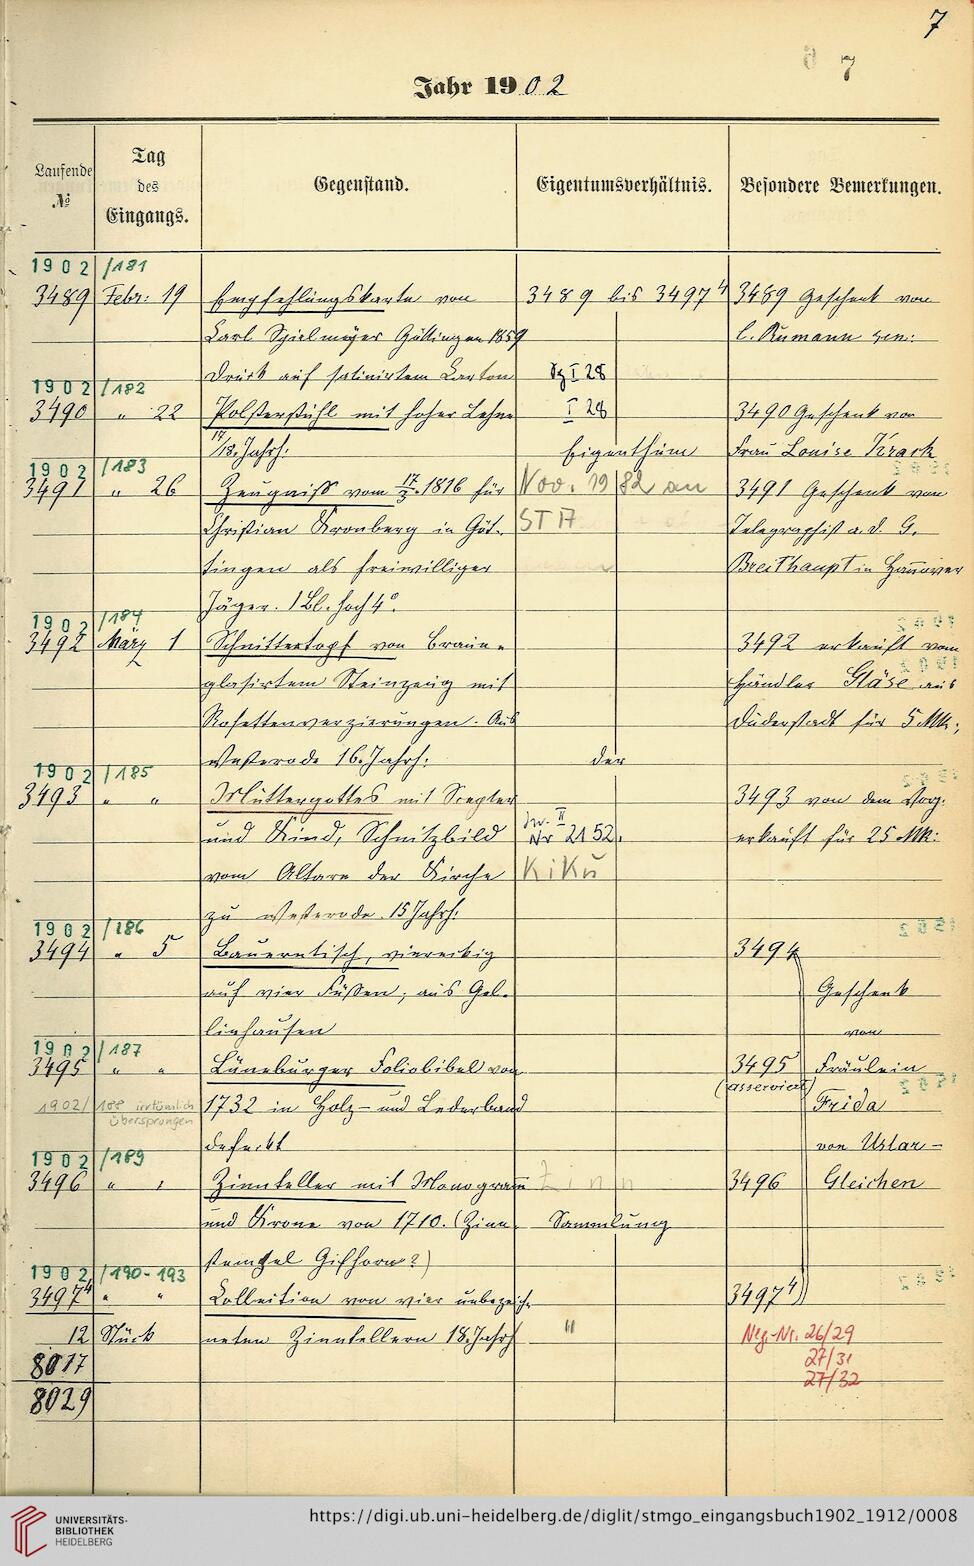 7
7
Jahr 1902
Laufende
№
Tag
des
Eingangs.
Gegenstand.
Eigentumsverhältnis.
Besondere Bemerkungen.
1902 /181
3489 Febr: 19 Empfehlungskarte von 3489 bis 3497⁴ 3489 Geschenk von
Carl Spielmeyer Göttingen 1859
Druck auf satinirtem Carton I 28
1902 /182
3490 " 22 Polsterstuhl mit hoher Lehne I 28 3490 Geschenk von
17/18. Jahrh: Eigenthum Frau Louise Krack
1902 /183
3491 " 26 Zeugniß vom 17/3. 1816 für Nov. 1982 an 3491 Geschenk von
Christian Kronberg in Göt- STA Telegraphist a. d. G.
tingen als freiwilliger Breithaupt in Hannover
Jäger. 1 Bl. hoch 4°.
1902 /184
3492 März 1 Schnittertopf von braun- 3492 erkauft vom
glasirtem Steinzeug mit Händler Gläse aus
Rosettenverzierungen. Aus Duderstadt für 5 Mk:,
Westerode 16. Jahrh: der
1902 /185
3493 " " Muttergottes mit Scepter 3493 von dem Vorg.
und Kind, Schnitzbild Nr 2152. erkauft für 25 Mk:
vom Altare der Kirche KiKu
zu Westerode. 15 Jahrh:
1902 /186
3494 " 5 Bauerntisch, viereckig 3494
auf vier Füßen; aus Gel- Geschenk
linhausen von
1902 /187
3495 " " Lüneburger Foliobibel von 3495 Fräulein
(asserviert)
1902/ 188 irrtümlich
übersprungen
1732 in Holz- und Lederband Frida
defeckt von Uslar-
1902 /189
3496 " " Zinnteller mit Monogram Zinn 3496 Gleichen
und Krone von 1710. (Zinn- Sammlung
stempel Gifhorn?)
1902 /190-193
3497⁴ " " Collection von vier unbezeich- 3497⁴
12 Stück neten Zinntellern 18. Jahrh " Neg-Nr. 26/29
8017 27/31
27/32
8029
UNIVERSITÄTS-
BIBLIOTHEK
HEIDELBERG
https://digi.ub.uni-heidelberg.de/diglit/stmgo_eingangsbuch1902_1912/0008